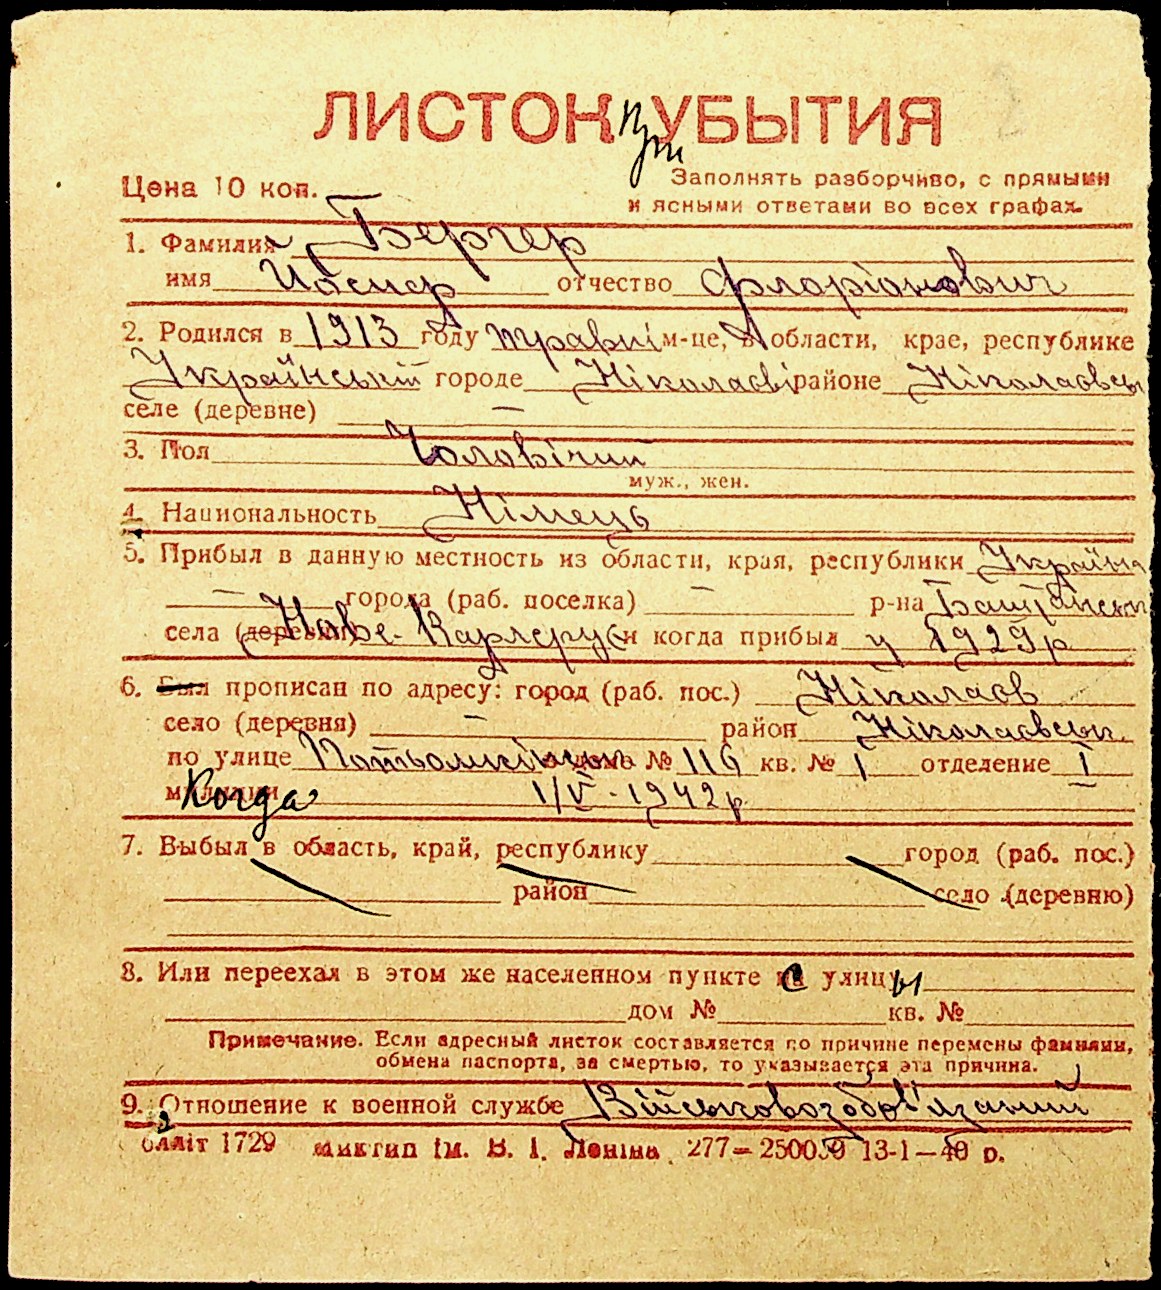 ЛИСТОК при УБЫТИЯ
Цена 10 коп. Заполнять разборчиво, с прямыми
и ясными ответами во всех графах.
1. Фамилия Бергер
имя Йосиф отчество Флоріанович
2. Родился в 1913 году травні м-це, в области, крае, республике
Українській городе Ніколаєві районе Ніколаєвськ
селе (деревне) —
3. Пол Чоловічий
муж., жен.
4. Национальность Німець
5. Прибыл в данную местность из области, края, республики Україна
— города (раб. поселка) — р-на Баштанськ
села (деревни) Нове-Карлсрує и когда прибыл у 1929 р
6. Был прописан по адресу: город (раб. пос.) Ніколаєв
село (деревня) — район Ніколаєвськ.
по улице Потьомкінськ дома № 116 кв. № 1 отделение I
милиции Когда 1/V-1942 р
7. Выбыл в область, край, республику город (раб. пос.)
район село (деревню)
8. Или переехал в этом же населенном пункте с улицы
дом № кв. №
Примечание. Если адресный листок составляется по причине перемены фамилии,
обмена паспорта, за смертью, то указывается эта причина.
9. Отношение к военной службе Військовозобов'язаний
блліт 1729 Миктип ім. В. І. Леніна 277—25003 13-1—40 р.